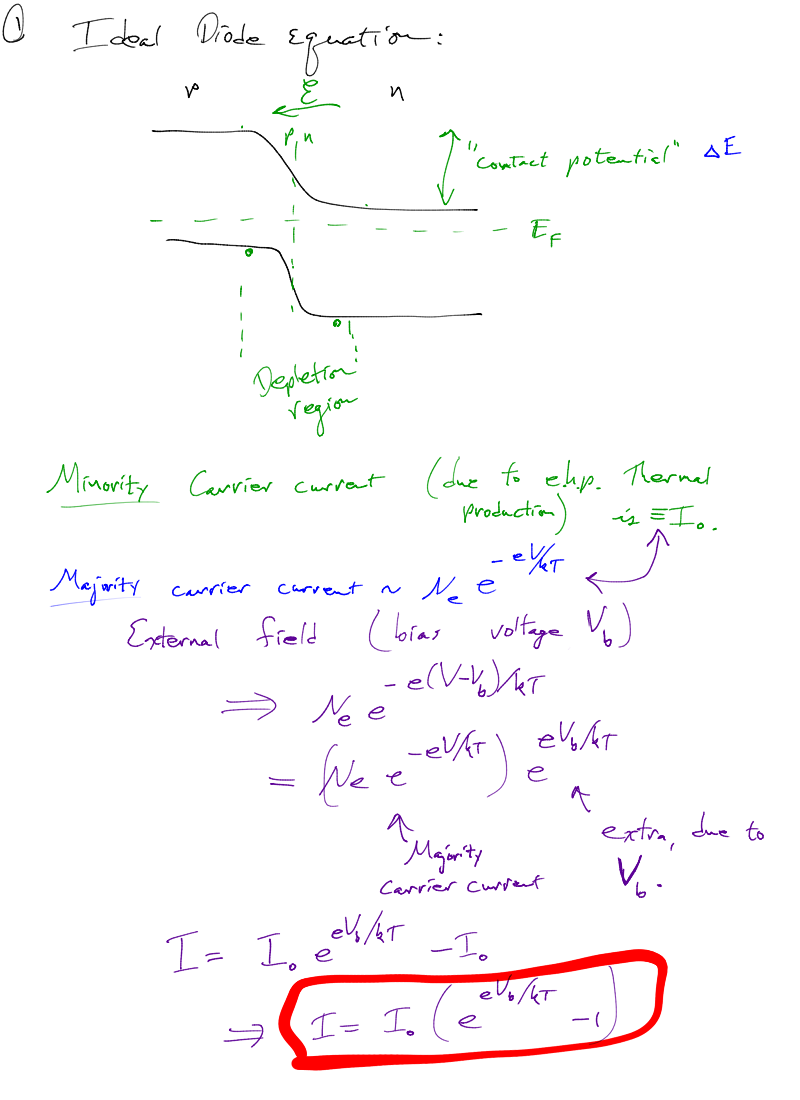 ① Ideal Diode Equation:
p ℰ n
p n
"contact potential" ΔE
E_F
Depletion
region
Minority Carrier current (due to e.h.p. Thermal
production) is ≡ I₀.
Majority carrier current ~ N_e e^{-eV/kT}
External field (bias voltage V_b)
⇒ N_e e^{-e(V-V_b)/kT}
= (N_e e^{-eV/kT}) e^{eV_b/kT}
extra, due to
V_b.
Majority
Carrier current
I = I₀ e^{eV_b/kT} - I₀
⇒ I = I₀ (e^{eV_b/kT} -1)